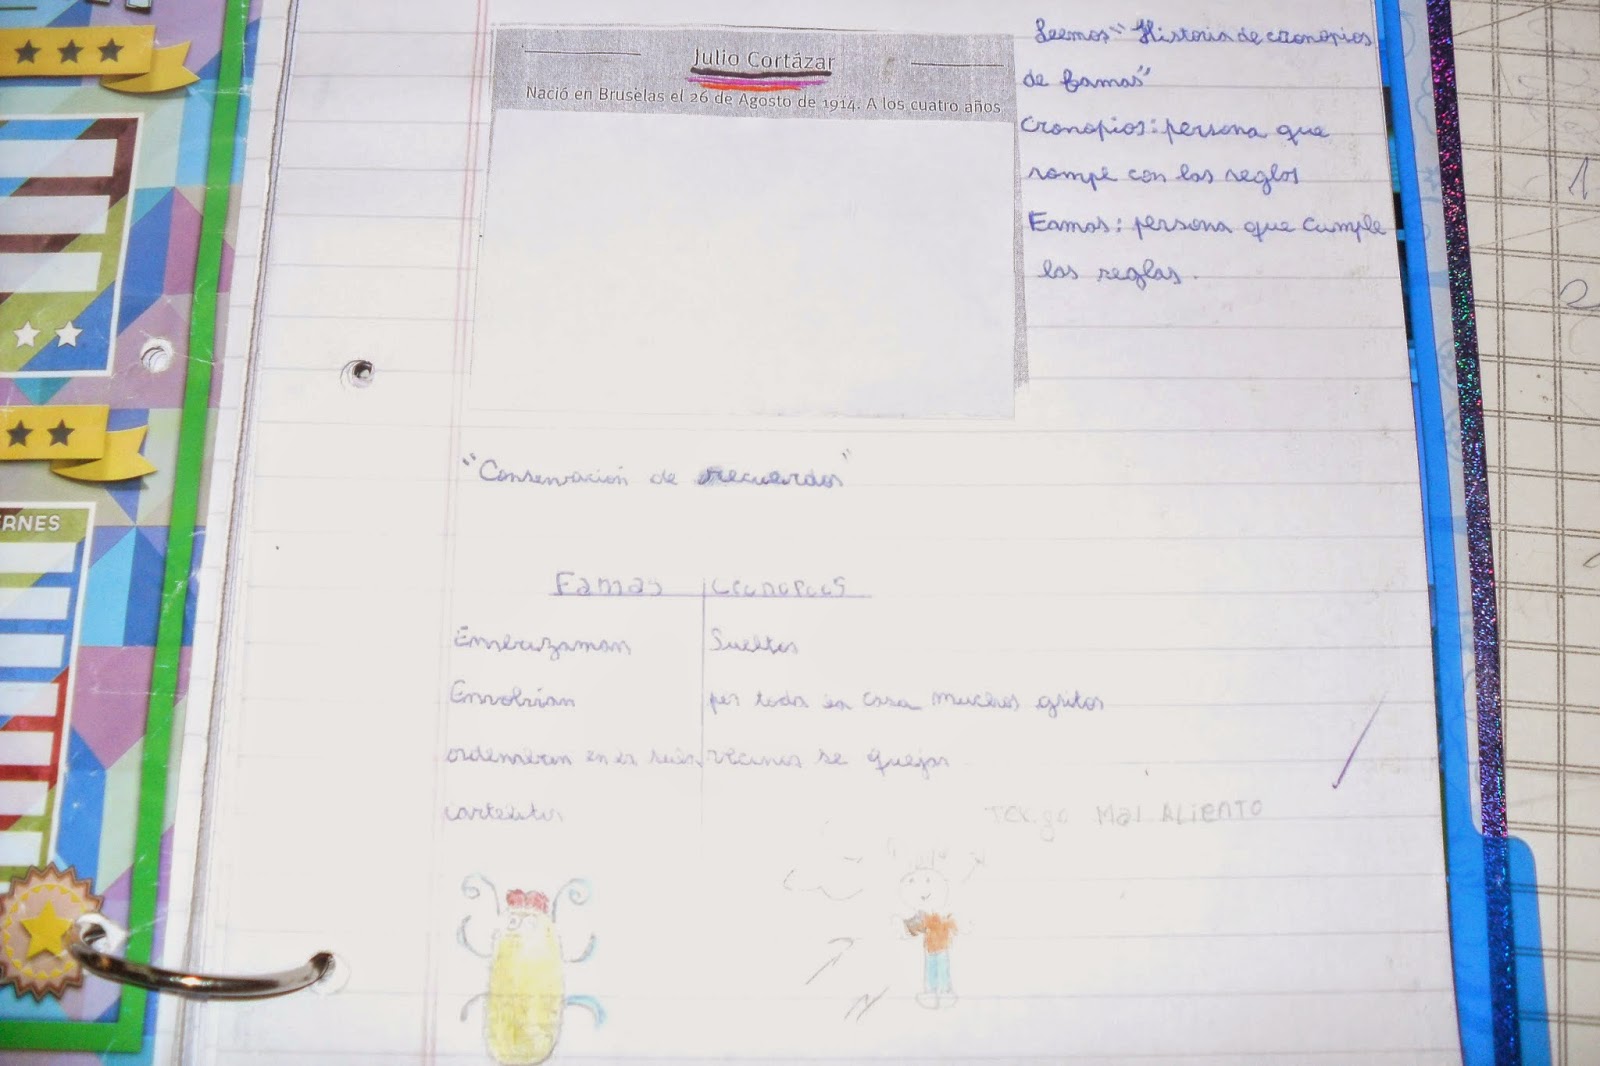 ERNES
Julio Cortázar
Nació en Bruselas el 26 de Agosto de 1914. A los cuatro años
Leemos "Historia de cronopios
de famas"
Cronopios: persona que
rompe con las reglas
Famas: persona que cumple
las reglas.
"Conservación de recuerdos"
Famas Cronopios
Sueltos
Envolvían
por toda la casa muchos gritos
vecinos se quejan
cartelitos
Tengo Mal ALiENTO
1
2